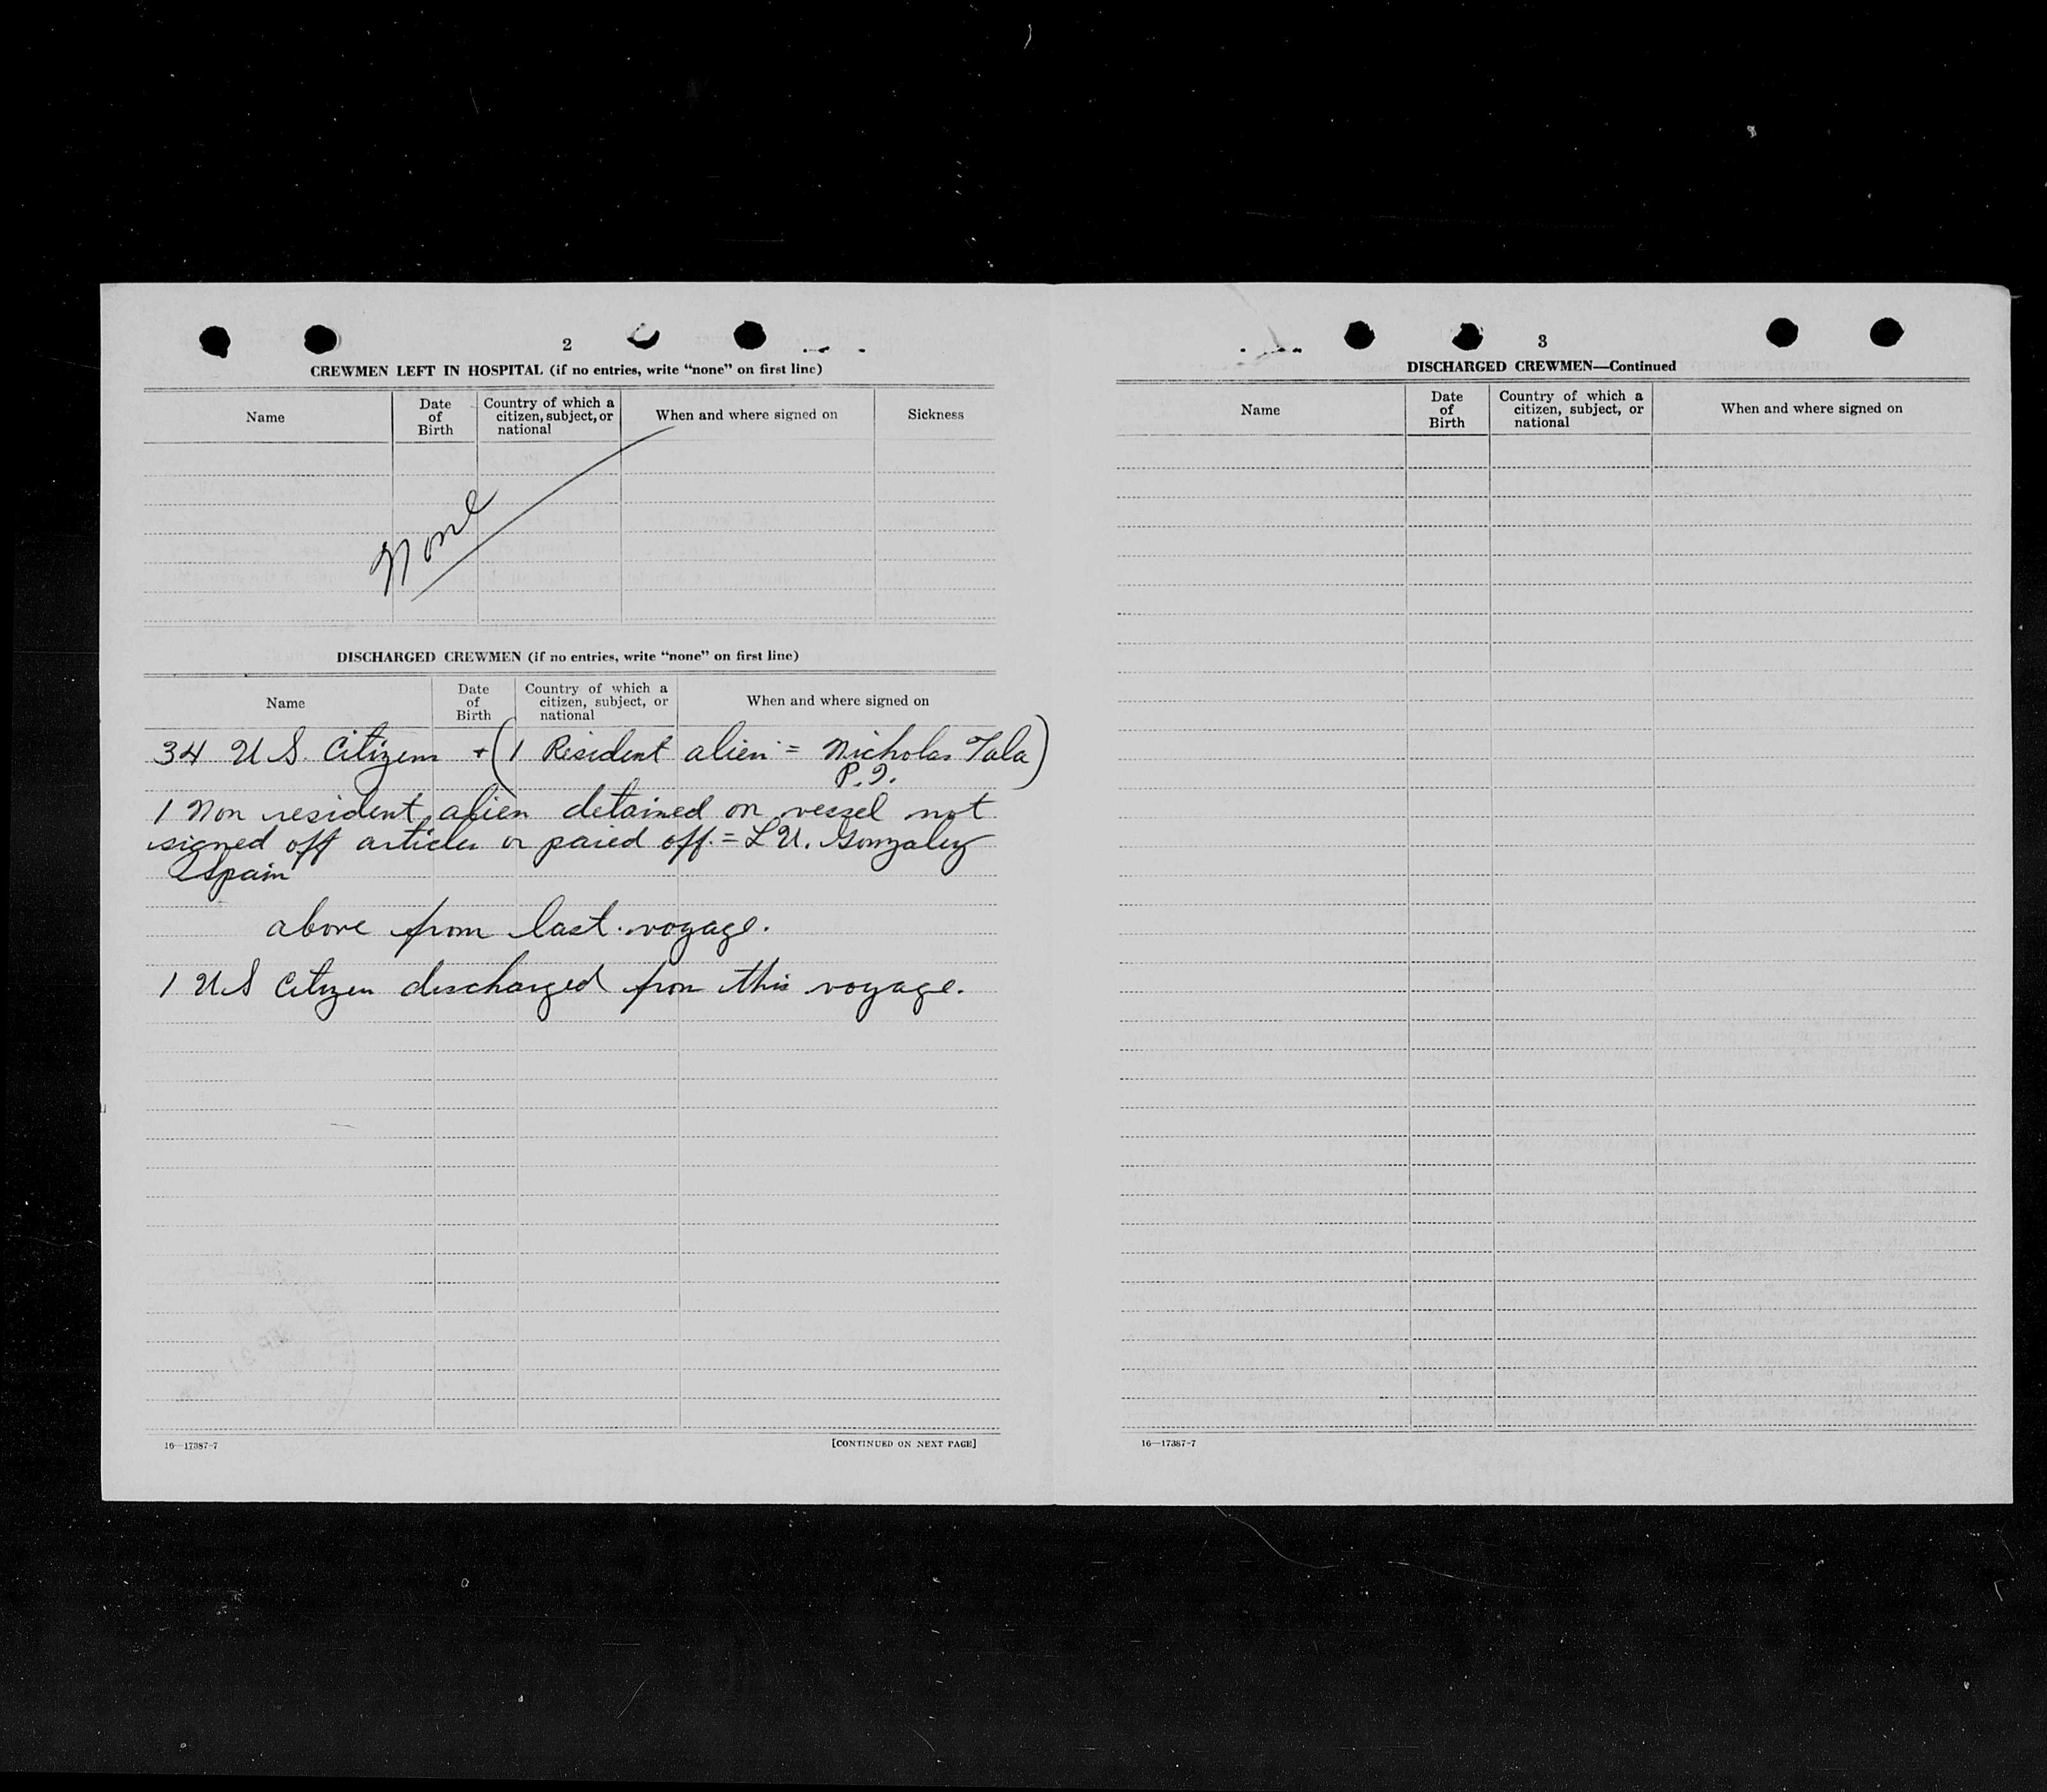 2
CREWMEN LEFT IN HOSPITAL (if no entries, write "none" on first line)
Name
Date of Birth
Country of which a citizen, subject, or national
When and where signed on
Sickness
None
DISCHARGED CREWMEN (if no entries, write "none" on first line)
Name
Date of Birth
Country of which a citizen, subject, or national
When and where signed on
34 U.S. Citizens + (1 Resident alien = Nicholas Tala)
P.I.
1 Non resident alien detained on vessel not
signed off articles or paied off. = L U. Gonzalez
Spain
above from last voyage.
1 US Citizen discharged from this voyage.
16—17387-7
[CONTINUED ON NEXT PAGE]
3
DISCHARGED CREWMEN—Continued
Name
Date of Birth
Country of which a citizen, subject, or national
When and where signed on
16—17387-7